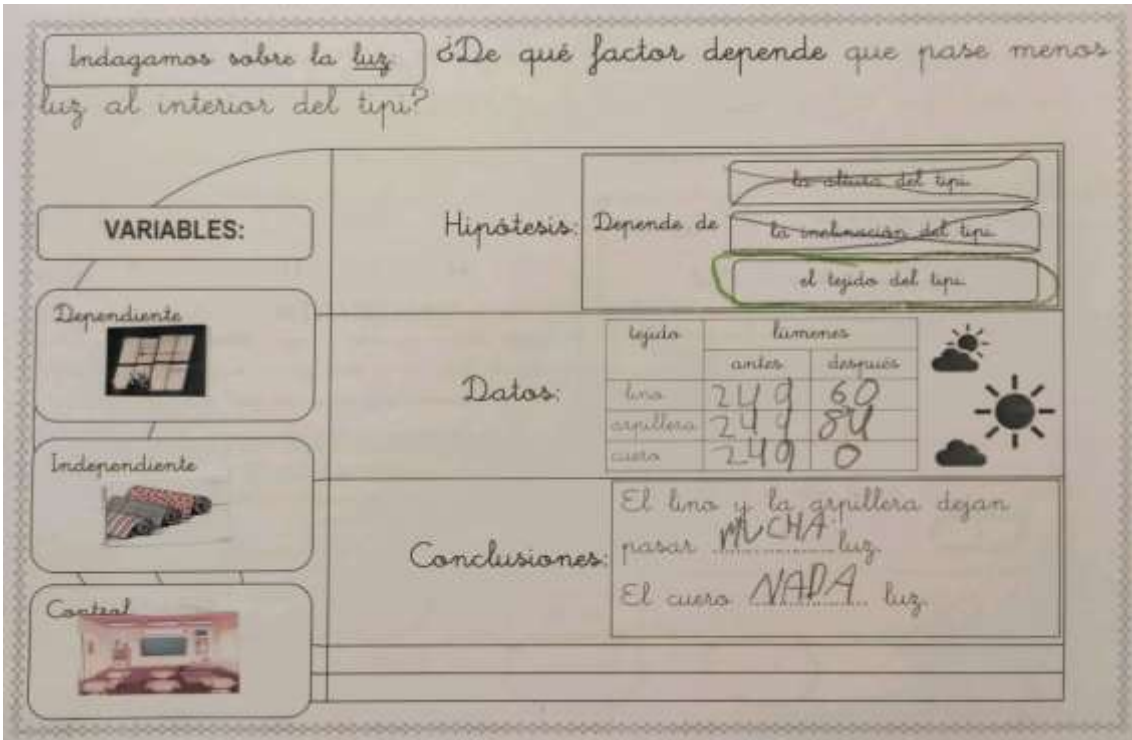 Indagamos sobre la luz: ¿De qué factor depende que pase menos
luz al interior del tipi?
VARIABLES:
Dependiente
Independiente
Control
Hipótesis:
Depende de
la altura del tipi
la inclinación del tipi
el tejido del tipi
Datos:
tejido lúmenes
antes después
lino 249 60
arpillera 249 84
cuero 249 0
Conclusiones:
El lino y la arpillera dejan
pasar MUCHA luz.
El cuero NADA luz.